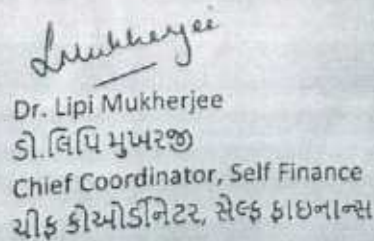 LMukherjee
Dr. Lipi Mukherjee
ડો.લિપિ મુખરજી
Chief Coordinator, Self Finance
ચીફ કોઓર્ડીનેટર, સેલ્ફ ફાઇનાન્સ